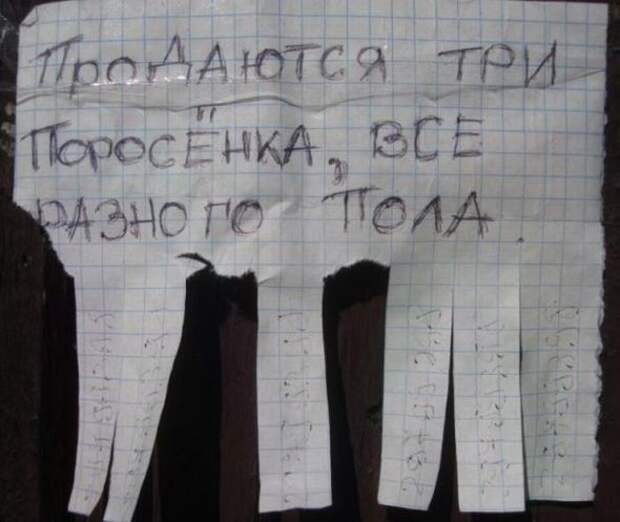 ПРОДАЮТСЯ ТРИ
ПОРОСЁНКА, ВСЕ
РАЗНОГО ПОЛА.